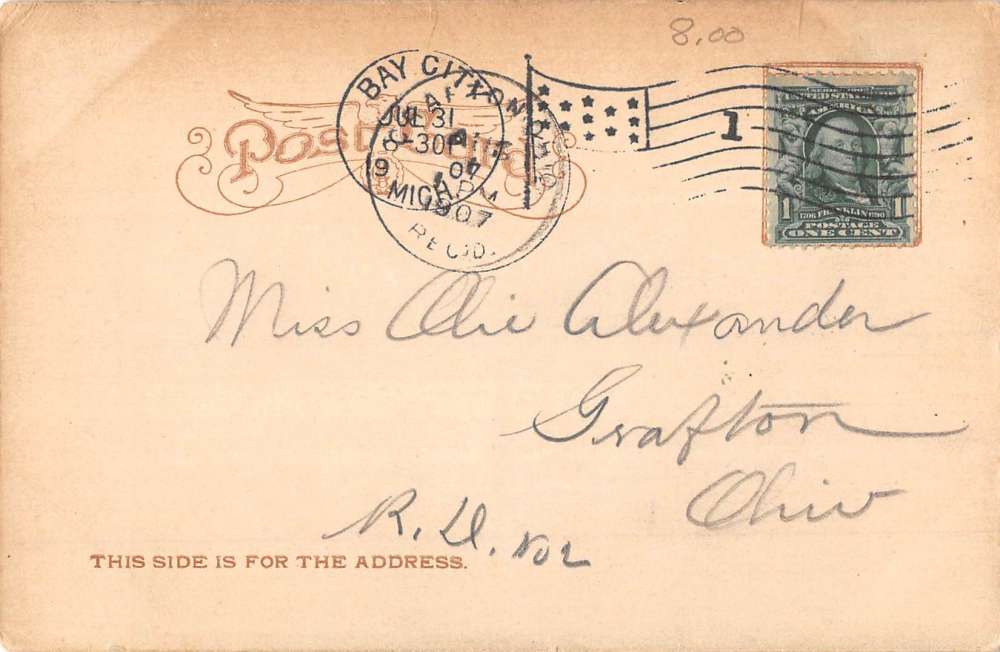 8.00
Post Card
BAY CITY
JUL 31
6-30P
1907
MICH.
GRAFTON OHIO
1907
REC'D.
1
SERIES 1902
UNITED STATES OF AMERICA
1 1706 FRANKLIN 1790 1
POSTAGE
ONE CENT
Miss Olie Alexander
Grafton
Ohio
R. D. No 2
THIS SIDE IS FOR THE ADDRESS.